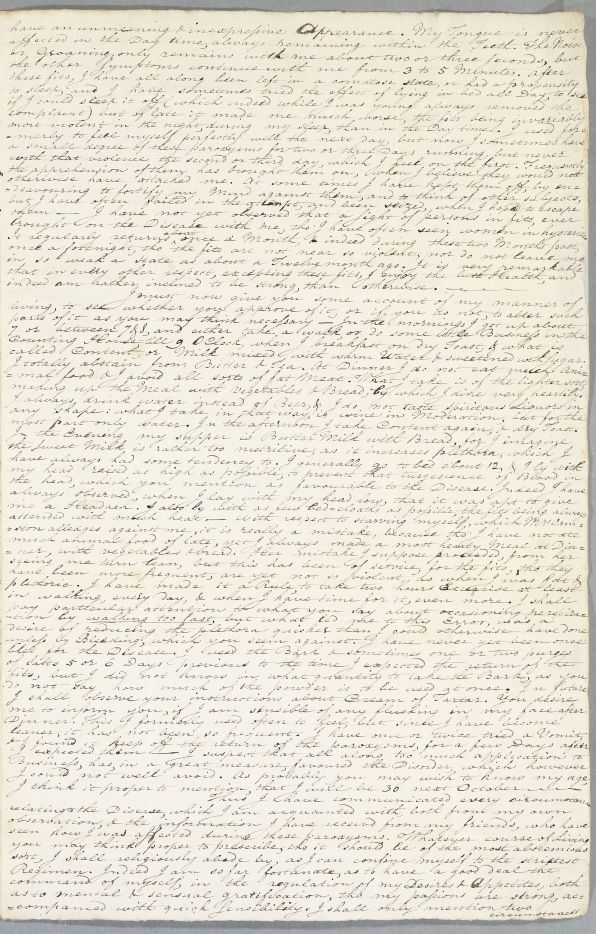 have an unmeaning & inexpressive Appearance. My Tongue is never
affected in the Day time, always remaining within the Teeth. The Noise
or Groaning, only remains with me about two or three seconds, but
the other Symptoms continue with me from 3 to 5 Minutes, after
these fits, I have all along been left in a comatose state, or had a propensity
to sleep, and I have sometimes tried the effect of lying in bed all Day, to see
if I could sleep it off (which indeed while I was young always removed the
Complaint) but of late it made me much worse, the fits being invariably
more violent in the night, during my sleep, than in the Day times. I used for=
=merly to feel myself perfectly well the next Day, but now, I sometimes have
a small degree of these paroxysms for two or three Days running, but never
with that violence the second or third day, which I feel on the first. Frequently
the apprehension of them, has brought them on, when I believe they would not
otherwise have attacked me. At some times I have kept them off, by en=
=deavouring to fortify my Mind against them, and to think of other subjects,
but I have often failed in the attempt, and been when I tried to escape
them — I have not yet observed that a sight of persons in fits, ever
brought on the Disease with me, tho I have often seen women in hysterics
It regularly returns about once a Month, & indeed during these two Months past,
once a fortnight, tho the fits are not near so violent, nor do not leave me
in so weak a state as about a Twelve month ago. It is very remarkable
that in every other respect, excepting these fits, I enjoy the best Health, and
indeed am rather inclined to be strong, than otherwise. —
I must now give you some account of my manner of
living, to see whether you approve of it, or if you do not, to alter such
parts of it as you may think necessary — In the mornings I get up about
7 or between 7 & 8, and either take a walk or do some little Business in the
Counting House till 9 OClock, when I breakfast on dry Toast, & what is
called Content, or Milk mixed with warm Water & sweetened with sugar.
I totally abstain from Butter & Tea. At Dinner I do not eat much Ani=
=mal food & avoid all sorts of fat Meat. That I take is of the lighter sort
making up the Meal with Vegetables & Bread, by which I dine very heartily.
I always drink water instead of Beer, & I do not taste spiritous Liquors in
any shape: what I take in that way, is wine in Moderation, but for the
most part only water. In the afternoon I take Content again, & dry Toast.
In the Evening my supper is Butter Milk with Bread, for I imagine
the sweet Milk is rather too nutritive, as it increases plethora, which I
have always had some tendency to. I generally go to bed about 12, & I ly with
my head raised as high as possible, to prevent that ingurgescence of Blood in
the head, which you mention as favourable to the Disease. Indeed I have
always observed, when I lay with my head low, that it was apt to give
me a Headach. I also ly with as few bedcloaths as possible, the fits being always
attended with much heat — With respect to starving myself, which Mrs
alledges against me, it is really a mistake, because tho I have not ate
much animal food of late, yet I always made a most hearty Meal at Din=
=ner, with vegetables & bread. Her mistake I suppose proceeded, from her
seeing me turn lean, but this has been of service, for the fits, tho they
have been more frequent, are yet not so violent, as when I was fat &
plethoric. I have made it a Rule to take two hours Exercise at least
in walking, every day, & when I have time for it, even more. I shall
pay particular attention to what you say about occasioning perspira=
=tion by walking too fast, but what led me in this Error, was, a
desire of reducing the plethora quicker than I could otherwise have done
unless by Bleeding, which you seem against. I have never yet been once
bled for the Disease. I used the Bark sometime, one or two purges
of salts 5 or 6 Days previous to the time I expected the return of the
fits, but I did not know in what quantity to take the Bark, as you
do not say how much of the powder is to be used at once. In future
I shall observe your instructions about Cream of Tartar. You desire
me to inform you, if I am sensible of any flushing in my face after
Dinner. This I formerly used often to feel, but since I have become
leaner, it has not been so frequent. I have once or twice tried a Vomit,
& found it keep off the return of the paroxysms, for a few Days after
I expected them — I suspect that all along too much application to
Business, has, in a great measure, favoured the Disorder, which however
I could not well avoid. As probably you may wish to know my age,
I think it proper to mention, that I will be 30 next October —
Thus I have communicated every circumstance
relating to the Disease, which I am acquainted with both from my own
observation, & the information I have received from my friends, who have
seen how I was affected during these paroxysms. Whatever course of living
you may think proper to prescribe, tho it should be of the most abstemious
sort, I shall religiously abide by, as I can confine myself to the strictest
Regimen. Indeed I am so far fortunate, as to have a good deal the
command of myself, in the regulation of my Desires & Appetites, both
as to mental & sensual gratification, tho my passions are strong, ac=
=companied with quick Sensibility. I shall only mention two
circumstances